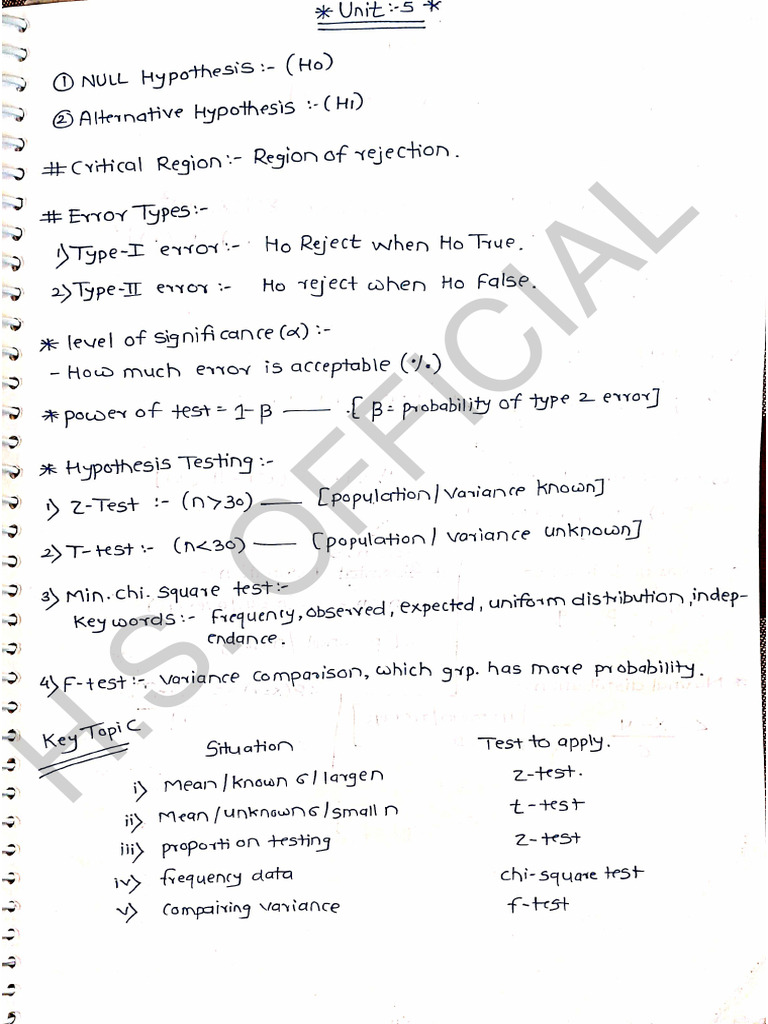 * Unit:-5 *
① NULL Hypothesis :- (H0)
② Alternative Hypothesis :- (H1)
# Critical Region :- Region of rejection.
# Error Types:-
1) Type-I error :- Ho Reject when Ho True.
2) Type-II error :- Ho reject when Ho False.
* level of significance (α) :-
- How much error is acceptable (%)
* power of test = 1-β —— [ β = probability of type 2 error]
* Hypothesis Testing :-
1) Z-Test :- (n>30) —— [population/variance known]
2) T-test :- (n<30) —— [population/ variance unknown]
3) Min. chi. square test :-
key words :- frequency, observed, expected, uniform distribution, indep-
endance.
4) F-test :- variance comparison, which grp. has more probability.
Key Topic
Situation Test to apply.
i) Mean/known σ/large n Z-test.
ii) Mean/unknown σ/small n t-test
iii) proportion testing Z-test
iv) frequency data chi-square test
v) compairing variance f-test
H.S. OFFiCIAL